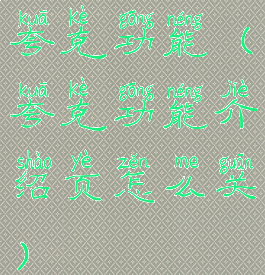 kuā kè gōng néng
夸克功能（
kuā kè gōng néng jiè
夸克功能介
shào yè zěn me guān
绍页怎么关
）